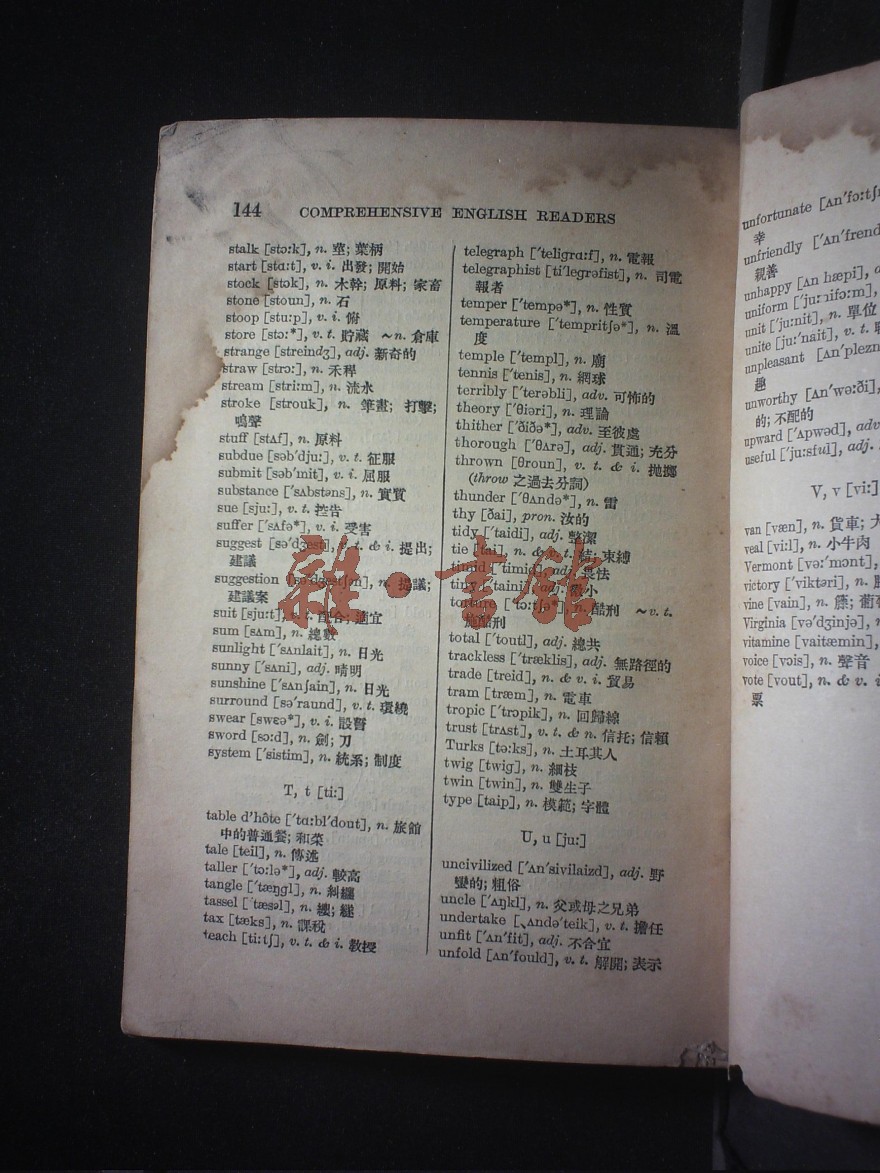 144 COMPREHENSIVE ENGLISH READERS
stalk [stɔːk], n. 莖; 葉柄
start [stɑːt], v. i. 出發; 開始
stock [stɔk], n. 木幹; 原料; 家畜
stone [stoun], n. 石
stoop [stuːp], v. i. 俯
store [stɔː*], v. t. 貯蔵 ~n. 倉庫
strange [streindʒ], adj. 新奇的
straw [strɔː], n. 禾稈
stream [striːm], n. 流水
stroke [strouk], n. 筆畫; 打擊;
鳴聲
stuff [stʌf], n. 原料
subdue [səb'djuː], v. t. 征服
submit [səb'mit], v. i. 屈服
substance ['sʌbstəns], n. 實質
sue [sjuː], v. t. 控告
suffer ['sʌfə*], v. i. 受害
suggest [sə'dʒest], v. t. & i. 提出;
建議
suggestion [sə'dʒestʃən], n. 提議;
建議案
suit [sjuːt], v. t. 配合; 適宜
sum [sʌm], n. 總數
sunlight ['sʌnlait], n. 日光
sunny ['sʌni], adj. 晴明
sunshine ['sʌnʃain], n. 日光
surround [sə'raund], v. t. 環繞
swear [swɛə*], v. i. 設誓
sword [sɔːd], n. 劍; 刀
system ['sistim], n. 統系; 制度
T, t [tiː]
table d'hôte ['tɑːbl'dout], n. 旅館
中的普通餐; 和菜
tale [teil], n. 傳述
taller ['tɔːlə*], adj. 較高
tangle ['tæŋgl], n. 糾纏
tassel ['tæsəl], n. 纓; 繸
tax [tæks], n. 課稅
teach [tiːtʃ], v. t. & i. 教授
telegraph ['teligrɑːf], n. 電報
telegraphist [ti'legrəfist], n. 司電
報者
temper ['tempə*], n. 性質
temperature ['tempritʃə*], n. 溫
度
temple ['templ], n. 廟
tennis ['tenis], n. 網球
terribly ['terəbli], adv. 可怖的
theory ['θiəri], n. 理論
thither ['ðiðə*], adv. 至彼處
thorough ['θʌrə], adj. 貫通; 充分
thrown [θroun], v. t. & i. 拋擲
(throw 之過去分詞)
thunder ['θʌndə*], n. 雷
thy [ðai], pron. 汝的
tidy ['taidi], adj. 整潔
tie [tai], n. & v. t. 結; 束縛
timid ['timid], adj. 畏怯
tiny ['taini], adj. 微小
torture ['tɔːtʃə*], n. 酷刑 ~v. t.
施酷刑
total ['toutl], adj. 總共
trackless ['træklis], adj. 無路徑的
trade [treid], n. & v. i. 貿易
tram [træm], n. 電車
tropic ['trɔpik], n. 回歸線
trust [trʌst], v. t. & n. 信托; 信賴
Turks [təːks], n. 土耳其人
twig [twig], n. 細枝
twin [twin], n. 雙生子
type [taip], n. 模範; 字體
U, u [juː]
uncivilized ['ʌn'sivilaizd], adj. 野
蠻的; 粗俗
uncle ['ʌŋkl], n. 父或母之兄弟
undertake [ˌʌndə'teik], v. t. 擔任
unfit ['ʌn'fit], adj. 不合宜
unfold [ʌn'fould], v. t. 解開; 表示
unfortunate [ʌn'fɔːtʃ
幸
unfriendly ['ʌn'frend
親善
unhappy [ʌn hæpi],
uniform ['juːnifɔːm],
unit ['juːnit], n. 單位
unite [juː'nait], v. t.
unpleasant [ʌn'plezn
趣
unworthy [ʌn'wəːði],
的; 不配的
upward ['ʌpwəd], adv
useful ['juːsful], adj.
V, v [viː]
van [væn], n. 貨車; 大
veal [viːl], n. 小牛肉
Vermont [vəː'mɔnt],
victory ['viktəri], n. 勝
vine [vain], n. 藤; 葡萄
Virginia [və'dʒinjə],
vitamine [vaitæmin],
voice [vɔis], n. 聲音
vote [vout], n. & v. i
票
雜·書館